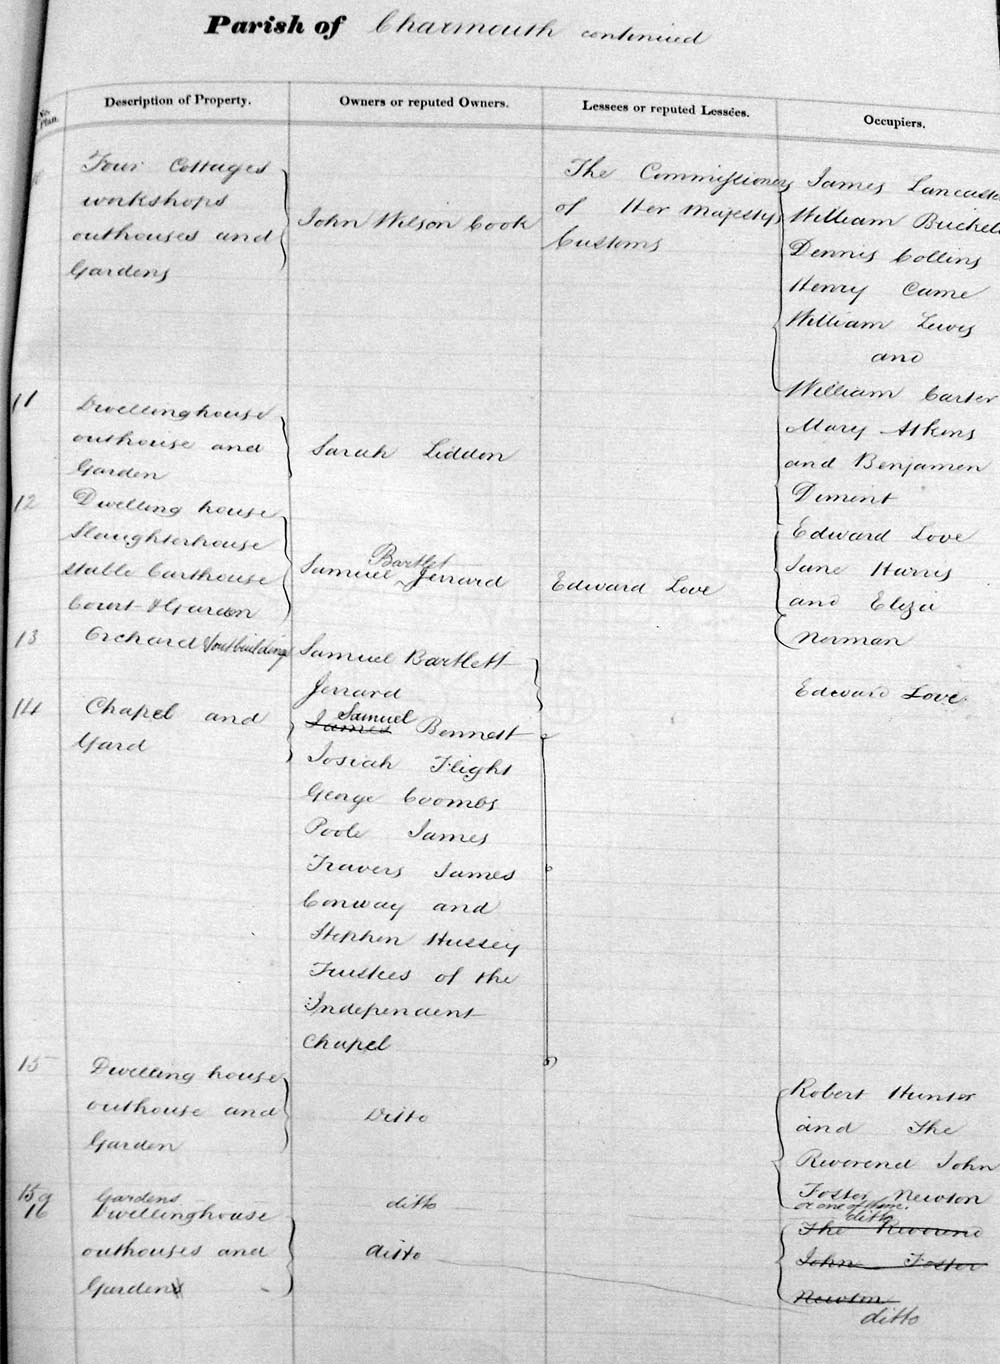 Parish of Charmouth continued
No. Plan.
Description of Property.
Owners or reputed Owners.
Lessees or reputed Lessees.
Occupiers.
Four Cottages
workshops
outhouses and
Gardens
John Wilson Cook
The Commissioners
of Her Majestys
Customs
James Lancaste
William Buchel
Dennis Collins
Henry Came
William Lewis
and
William Carter
11
Dwellinghouse
outhouse and
Garden
Sarah Liddon
Mary Atkins
and Benjamen
Diment
12
Dwelling house
Slaughterhouse
stable Carthouse
Court & Garden
Bartlet
Samuel Jerrard
Edward Love
Edward Love
Jane Harris
and Eliza
Norman
13
Orchard & outbuilding
Samuel Bartlett
Jerrard
Edward Love
14
Chapel and
Yard
Samuel
James Bennett
Josiah Flight
George Coombs
Poole James
Travers James
Conway and
Stephen Hussey
Trustees of the
Independent
Chapel
15
Dwelling house
outhouse and
Garden
Ditto
Robert Hunter
and The
Reverend John
Foster Newton
or one of them.
15a
Gardens
ditto
ditto
16
Dwellinghouse
outhouses and
Gardens
ditto
The Reverend
John Foster
Newton
ditto